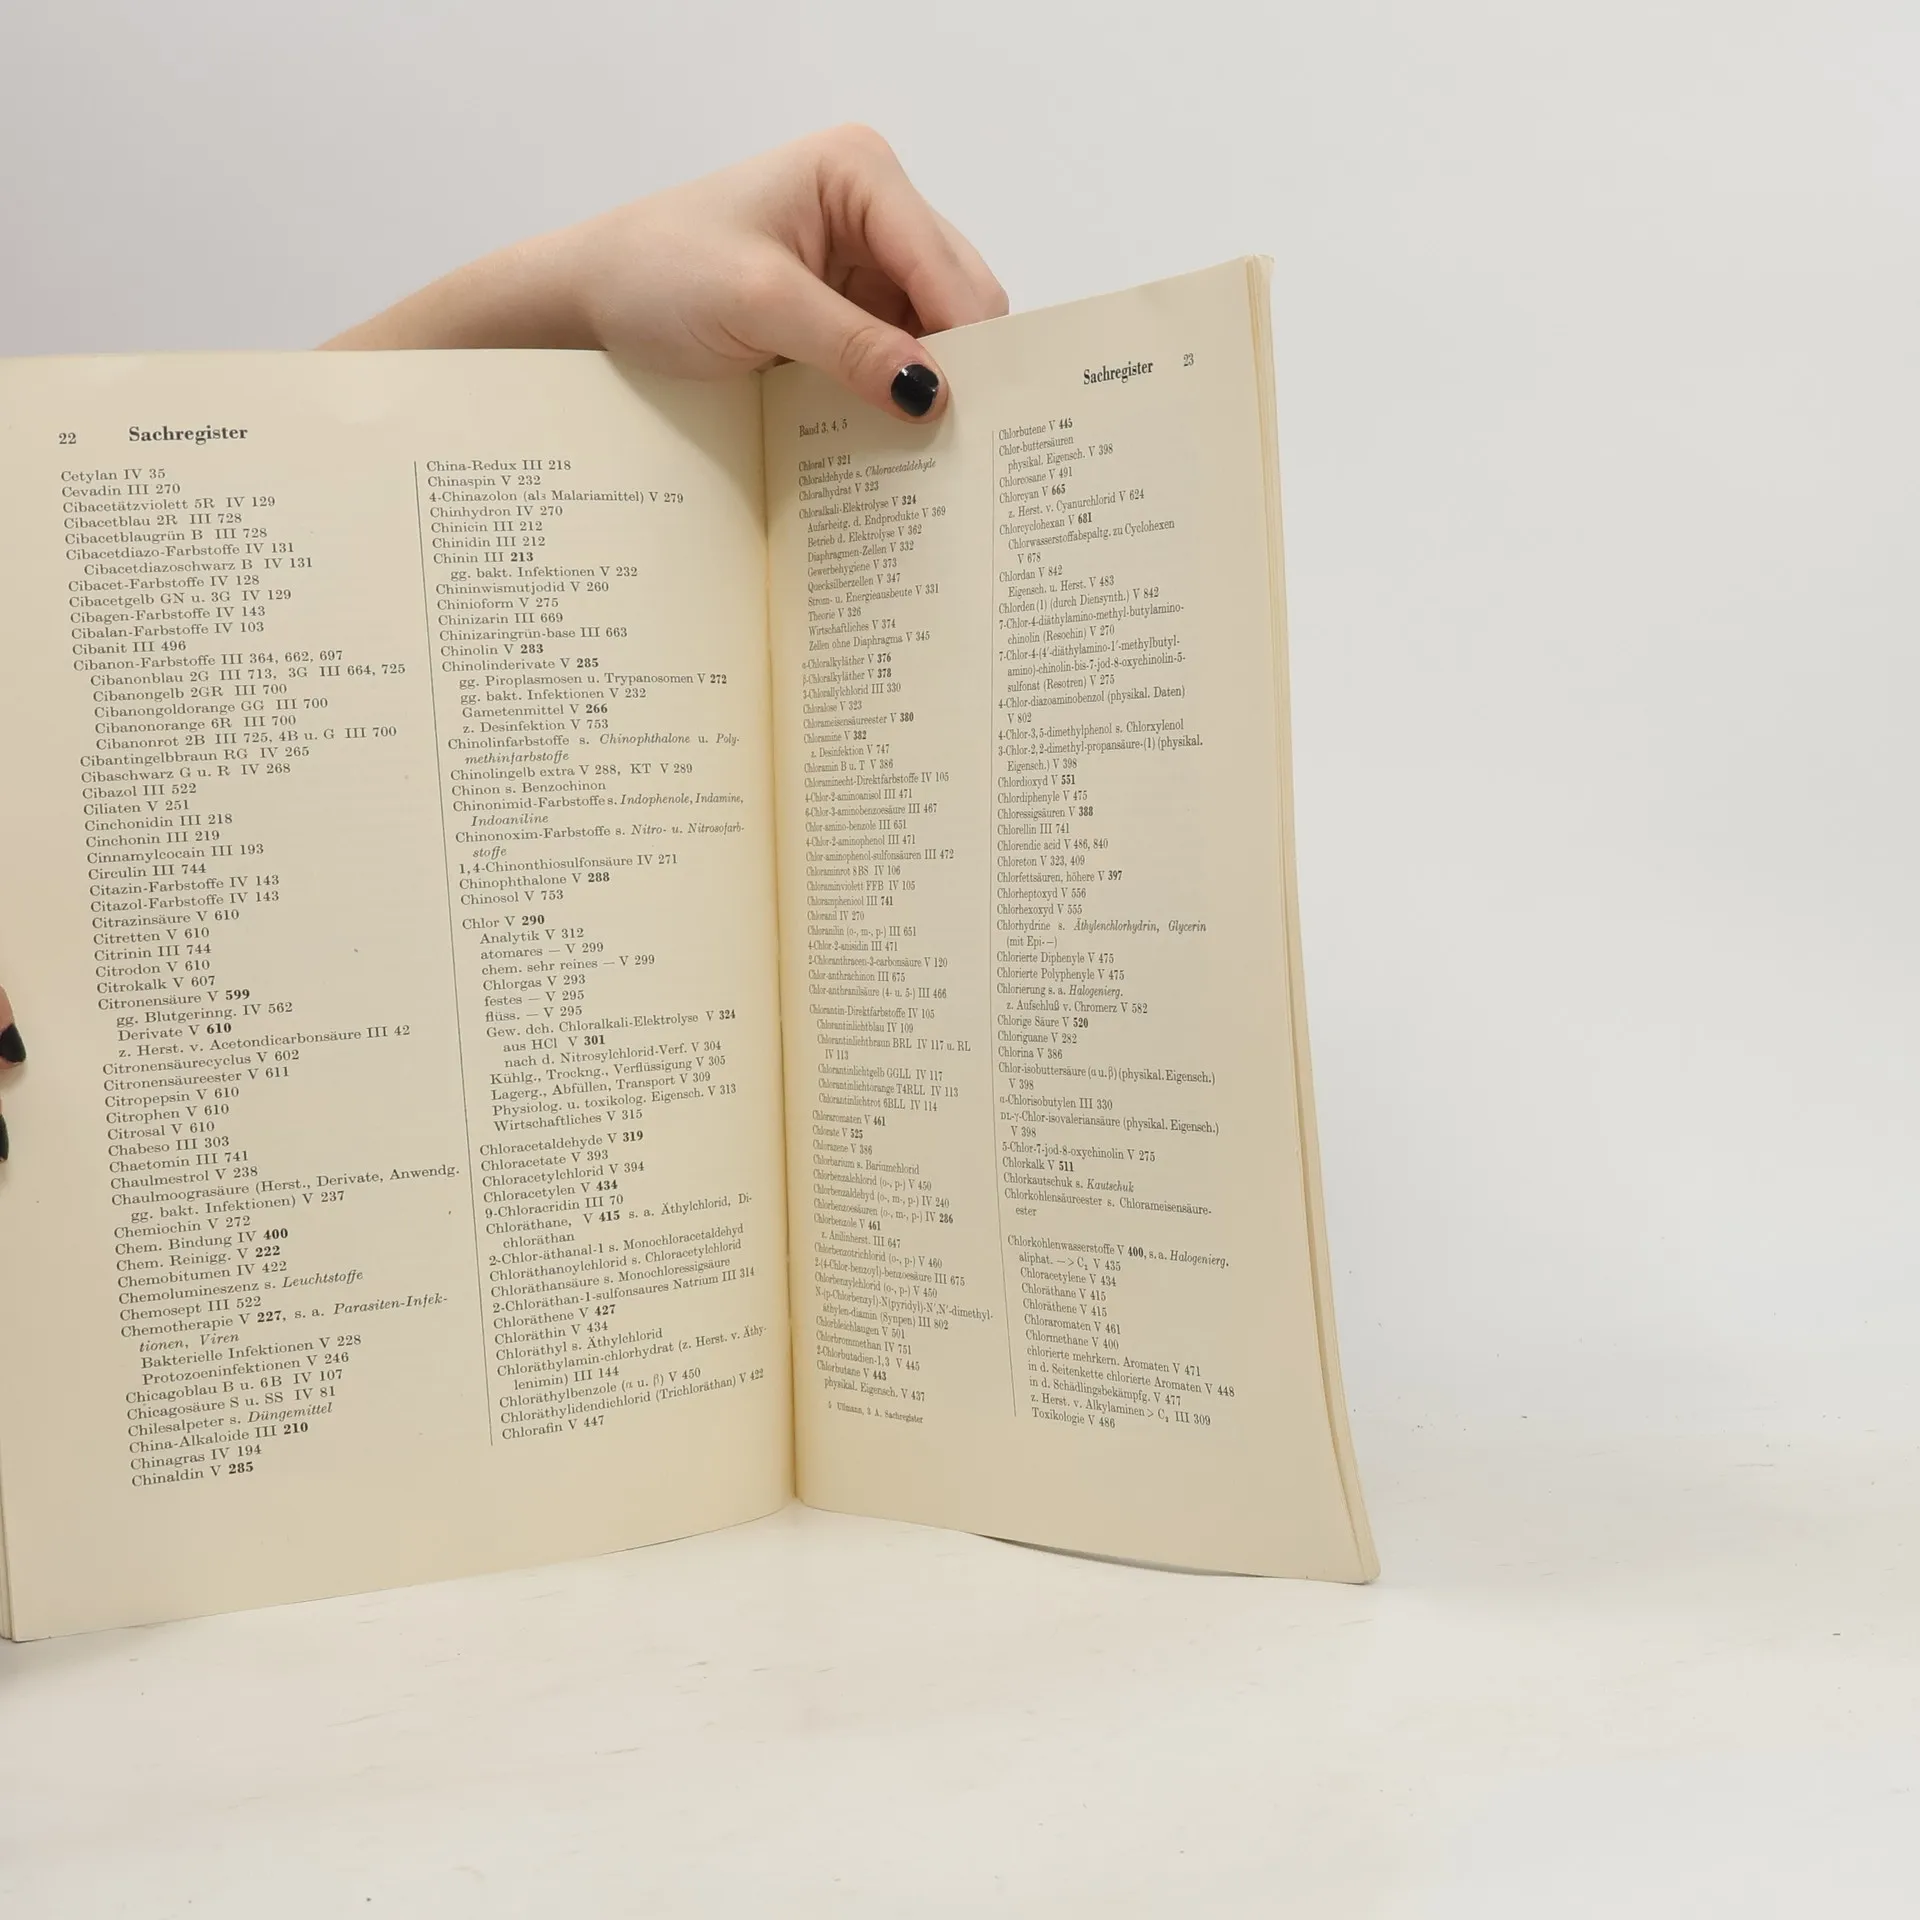 22 Sachregister
Cetylan IV 35
Cevadin III 270
Cibacetätzviolett 5R IV 129
Cibacetblau 2R III 728
Cibacetblaugrün B III 728
Cibacetdiazo-Farbstoffe IV 131
Cibacetdiazoschwarz B IV 131
Cibacet-Farbstoffe IV 128
Cibacetgelb GN u. 3G IV 129
Cibagen-Farbstoffe IV 143
Cibalan-Farbstoffe IV 103
Cibanit III 496
Cibanon-Farbstoffe III 364, 662, 697
Cibanonblau 2G III 713, 3G III 664, 725
Cibanongelb 2GR III 700
Cibanongoldorange GG III 700
Cibanonorange 6R III 700
Cibanonrot 2B III 725, 4B u. G III 700
Cibantingelbbraun RG IV 265
Cibaschwarz G u. R IV 268
Cibazol III 522
Ciliaten V 251
Cinchonidin III 218
Cinchonin III 219
Cinnamylcocain III 193
Circulin III 744
Citazin-Farbstoffe IV 143
Citazol-Farbstoffe IV 143
Citrazinsäure V 610
Citretten V 610
Citrinin III 744
Citrodon V 610
Citrokalk V 607
Citronensäure V 599
gg. Blutgerinng. IV 562
Derivate V 610
z. Herst. v. Acetondicarbonsäure III 42
Citronensäurecyclus V 602
Citronensäureester V 611
Citropepsin V 610
Citrophen V 610
Citrosal V 610
Chabeso III 303
Chaetomin III 741
Chaulmestrol V 238
Chaulmoograsäure (Herst., Derivate, Anwendg.
gg. bakt. Infektionen) V 237
Chemiochin V 272
Chem. Bindung IV 400
Chem. Reinigg. V 222
Chemobitumen IV 422
Chemolumineszenz s. Leuchtstoffe
Chemosept III 522
Chemotherapie V 227, s. a. Parasiten-Infek-
tionen, Viren
Bakterielle Infektionen V 228
Protozoeninfektionen V 246
Chicagoblau B u. 6B IV 107
Chicagosäure S u. SS IV 81
Chilesalpeter s. Düngemittel
China-Alkaloide III 210
Chinagras IV 194
Chinaldin V 285
China-Redux III 218
Chinaspin V 232
4-Chinazolon (als Malariamittel) V 279
Chinhydron IV 270
Chinicin III 212
Chinidin III 212
Chinin III 213
gg. bakt. Infektionen V 232
Chininwismutjodid V 260
Chinioform V 275
Chinizarin III 669
Chinizaringrün-base III 663
Chinolin V 283
Chinolinderivate V 285
gg. Piroplasmosen u. Trypanosomen V 272
gg. bakt. Infektionen V 232
Gametenmittel V 266
z. Desinfektion V 753
Chinolinfarbstoffe s. Chinophthalone u. Poly-
methinfarbstoffe
Chinolingelb extra V 288, KT V 289
Chinon s. Benzochinon
Chinonimid-Farbstoffe s. Indophenole, Indamine,
Indoaniline
Chinonoxim-Farbstoffe s. Nitro- u. Nitrosofarb-
stoffe
1,4-Chinonthiosulfonsäure IV 271
Chinophthalone V 288
Chinosol V 753
Chlor V 290
Analytik V 312
atomares — V 299
chem. sehr reines — V 299
Chlorgas V 293
festes — V 295
flüss. — V 295
Gew. dch. Chloralkali-Elektrolyse V 324
aus HCl V 301
nach d. Nitrosylchlorid-Verf. V 304
Kühlg., Trockng., Verflüssigung V 305
Lagerg., Abfüllen, Transport V 309
Physiolog. u. toxikolog. Eigensch. V 313
Wirtschaftliches V 315
Chloracetaldehyde V 319
Chloracetate V 393
Chloracetylchlorid V 394
Chloracetylen V 434
9-Chloracridin III 70
Chloräthane, V 415 s. a. Äthylchlorid, Di-
chloräthan
2-Chlor-äthanal-1 s. Monochloracetaldehyd
Chloräthanoylchlorid s. Chloracetylchlorid
Chloräthansäure s. Monochloressigsäure
2-Chloräthan-1-sulfonsaures Natrium III 314
Chloräthene V 427
Chloräthin V 434
Chloräthyl s. Äthylchlorid
Chloräthylamin-chlorhydrat (z. Herst. v. Äthy-
lenimin) III 144
Chloräthylbenzole (α u. β) V 450
Chloräthylidendichlorid (Trichloräthan) V 422
Chlorafin V 447
Sachregister 23
Band 3, 4, 5
Chloral V 321
Chloraldehyde s. Chloracetaldehyde
Chloralhydrat V 323
Chloralkali-Elektrolyse V 324
Aufarbeitg. d. Endprodukte V 369
Betrieb d. Elektrolyse V 362
Diaphragmen-Zellen V 332
Gewerbehygiene V 373
Quecksilberzellen V 347
Strom- u. Energieausbeute V 331
Theorie V 326
Wirtschaftliches V 374
Zellen ohne Diaphragma V 345
α-Chloralkyläther V 376
β-Chloralkyläther V 378
3-Chlorallylchlorid III 330
Chloralose V 323
Chlorameisensäureester V 380
Chloramine V 382
z. Desinfektion V 747
Chloramin B u. T V 386
Chloraminecht-Direktfarbstoffe IV 105
4-Chlor-2-aminoanisol III 471
6-Chlor-3-aminobenzoesäure III 467
Chlor-amino-benzole III 651
4-Chlor-2-aminophenol III 471
Chlor-aminophenol-sulfonsäuren III 472
Chloraminrot 8BS IV 106
Chloraminviolett FFB IV 105
Chloramphenicol III 741
Chloranil IV 270
Chloranilin (o-, m-, p-) III 651
4-Chlor-2-anisidin III 471
2-Chloranthracen-3-carbonsäure V 120
Chlor-anthrachinon III 675
Chlor-anthranilsäure (4- u. 5-) III 466
Chlorantin-Direktfarbstoffe IV 105
Chlorantinlichtblau IV 109
Chlorantinlichtbraun BRL IV 117 u. RL
IV 113
Chlorantinlichtgelb GGLL IV 117
Chlorantinlichtorange T4RLL IV 113
Chlorantinlichtrot 6BLL IV 114
Chloraromaten V 461
Chlorate V 525
Chlorazene V 386
Chlorbarium s. Bariumchlorid
Chlorbenzalchlorid (o-, p-) V 450
Chlorbenzaldehyd (o-, m-, p-) IV 240
Chlorbenzoesäuren (o-, m-, p-) IV 286
Chlorbenzole V 461
z. Anilinherst. III 647
Chlorbenzotrichlorid (o-, p-) V 460
2-(4-Chlor-benzoyl)-benzoesäure III 675
Chlorbenzylchlorid (o-, p-) V 450
N-(p-Chlorbenzyl)-N(pyridyl)-N′,N′-dimethyl-
äthylen-diamin (Synpen) III 802
Chlorbleichlaugen V 501
Chlorbrommethan IV 751
2-Chlorbutadien-1,3 V 445
Chlorbutane V 443
physikal. Eigensch. V 437
5 Ullmann, 3 A. Sachregister
Chlorbutene V 445
Chlor-buttersäuren
physikal. Eigensch. V 398
Chlorcosane V 491
Chlorcyan V 665
z. Herst. v. Cyanurchlorid V 624
Chlorcyclohexan V 681
Chlorwasserstoffabspaltg. zu Cyclohexen
V 678
Chlordan V 842
Eigensch. u. Herst. V 483
Chlorden (1) (durch Diensynth.) V 842
7-Chlor-4-diäthylamino-methyl-butylamino-
chinolin (Resochin) V 270
7-Chlor-4-(4′-diäthylamino-1′-methylbutyl-
amino)-chinolin-bis-7-jod-8-oxychinolin-5-
sulfonat (Resotren) V 275
4-Chlor-diazoaminobenzol (physikal. Daten)
V 802
4-Chlor-3,5-dimethylphenol s. Chlorxylenol
3-Chlor-2,2-dimethyl-propansäure-(1) (physikal.
Eigensch.) V 398
Chlordioxyd V 551
Chlordiphenyle V 475
Chloressigsäuren V 388
Chlorellin III 741
Chlorendic acid V 486, 840
Chloreton V 323, 409
Chlorfettsäuren, höhere V 397
Chlorheptoxyd V 556
Chlorhexoxyd V 555
Chlorhydrine s. Äthylenchlorhydrin, Glycerin
(mit Epi-—)
Chlorierte Diphenyle V 475
Chlorierte Polyphenyle V 475
Chlorierung s. a. Halogenierg.
z. Aufschluß v. Chromerz V 582
Chlorige Säure V 520
Chloriguane V 282
Chlorina V 386
Chlor-isobuttersäure (α u. β) (physikal. Eigensch.)
V 398
α-Chlorisobutylen III 330
DL-γ-Chlor-isovaleriansäure (physikal. Eigensch.)
V 398
5-Chlor-7-jod-8-oxychinolin V 275
Chlorkalk V 511
Chlorkautschuk s. Kautschuk
Chlorkohlensäureester s. Chlorameisensäure-
ester
Chlorkohlenwasserstoffe V 400, s. a. Halogenierg.
aliphat. — > C₂ V 435
Chloracetylene V 434
Chloräthane V 415
Chloräthene V 415
Chloraromaten V 461
Chlormethane V 400
chlorierte mehrkern. Aromaten V 471
in d. Seitenkette chlorierte Aromaten V 448
in d. Schädlingsbekämpfg. V 477
z. Herst. v. Alkylaminen > C₃ III 309
Toxikologie V 486